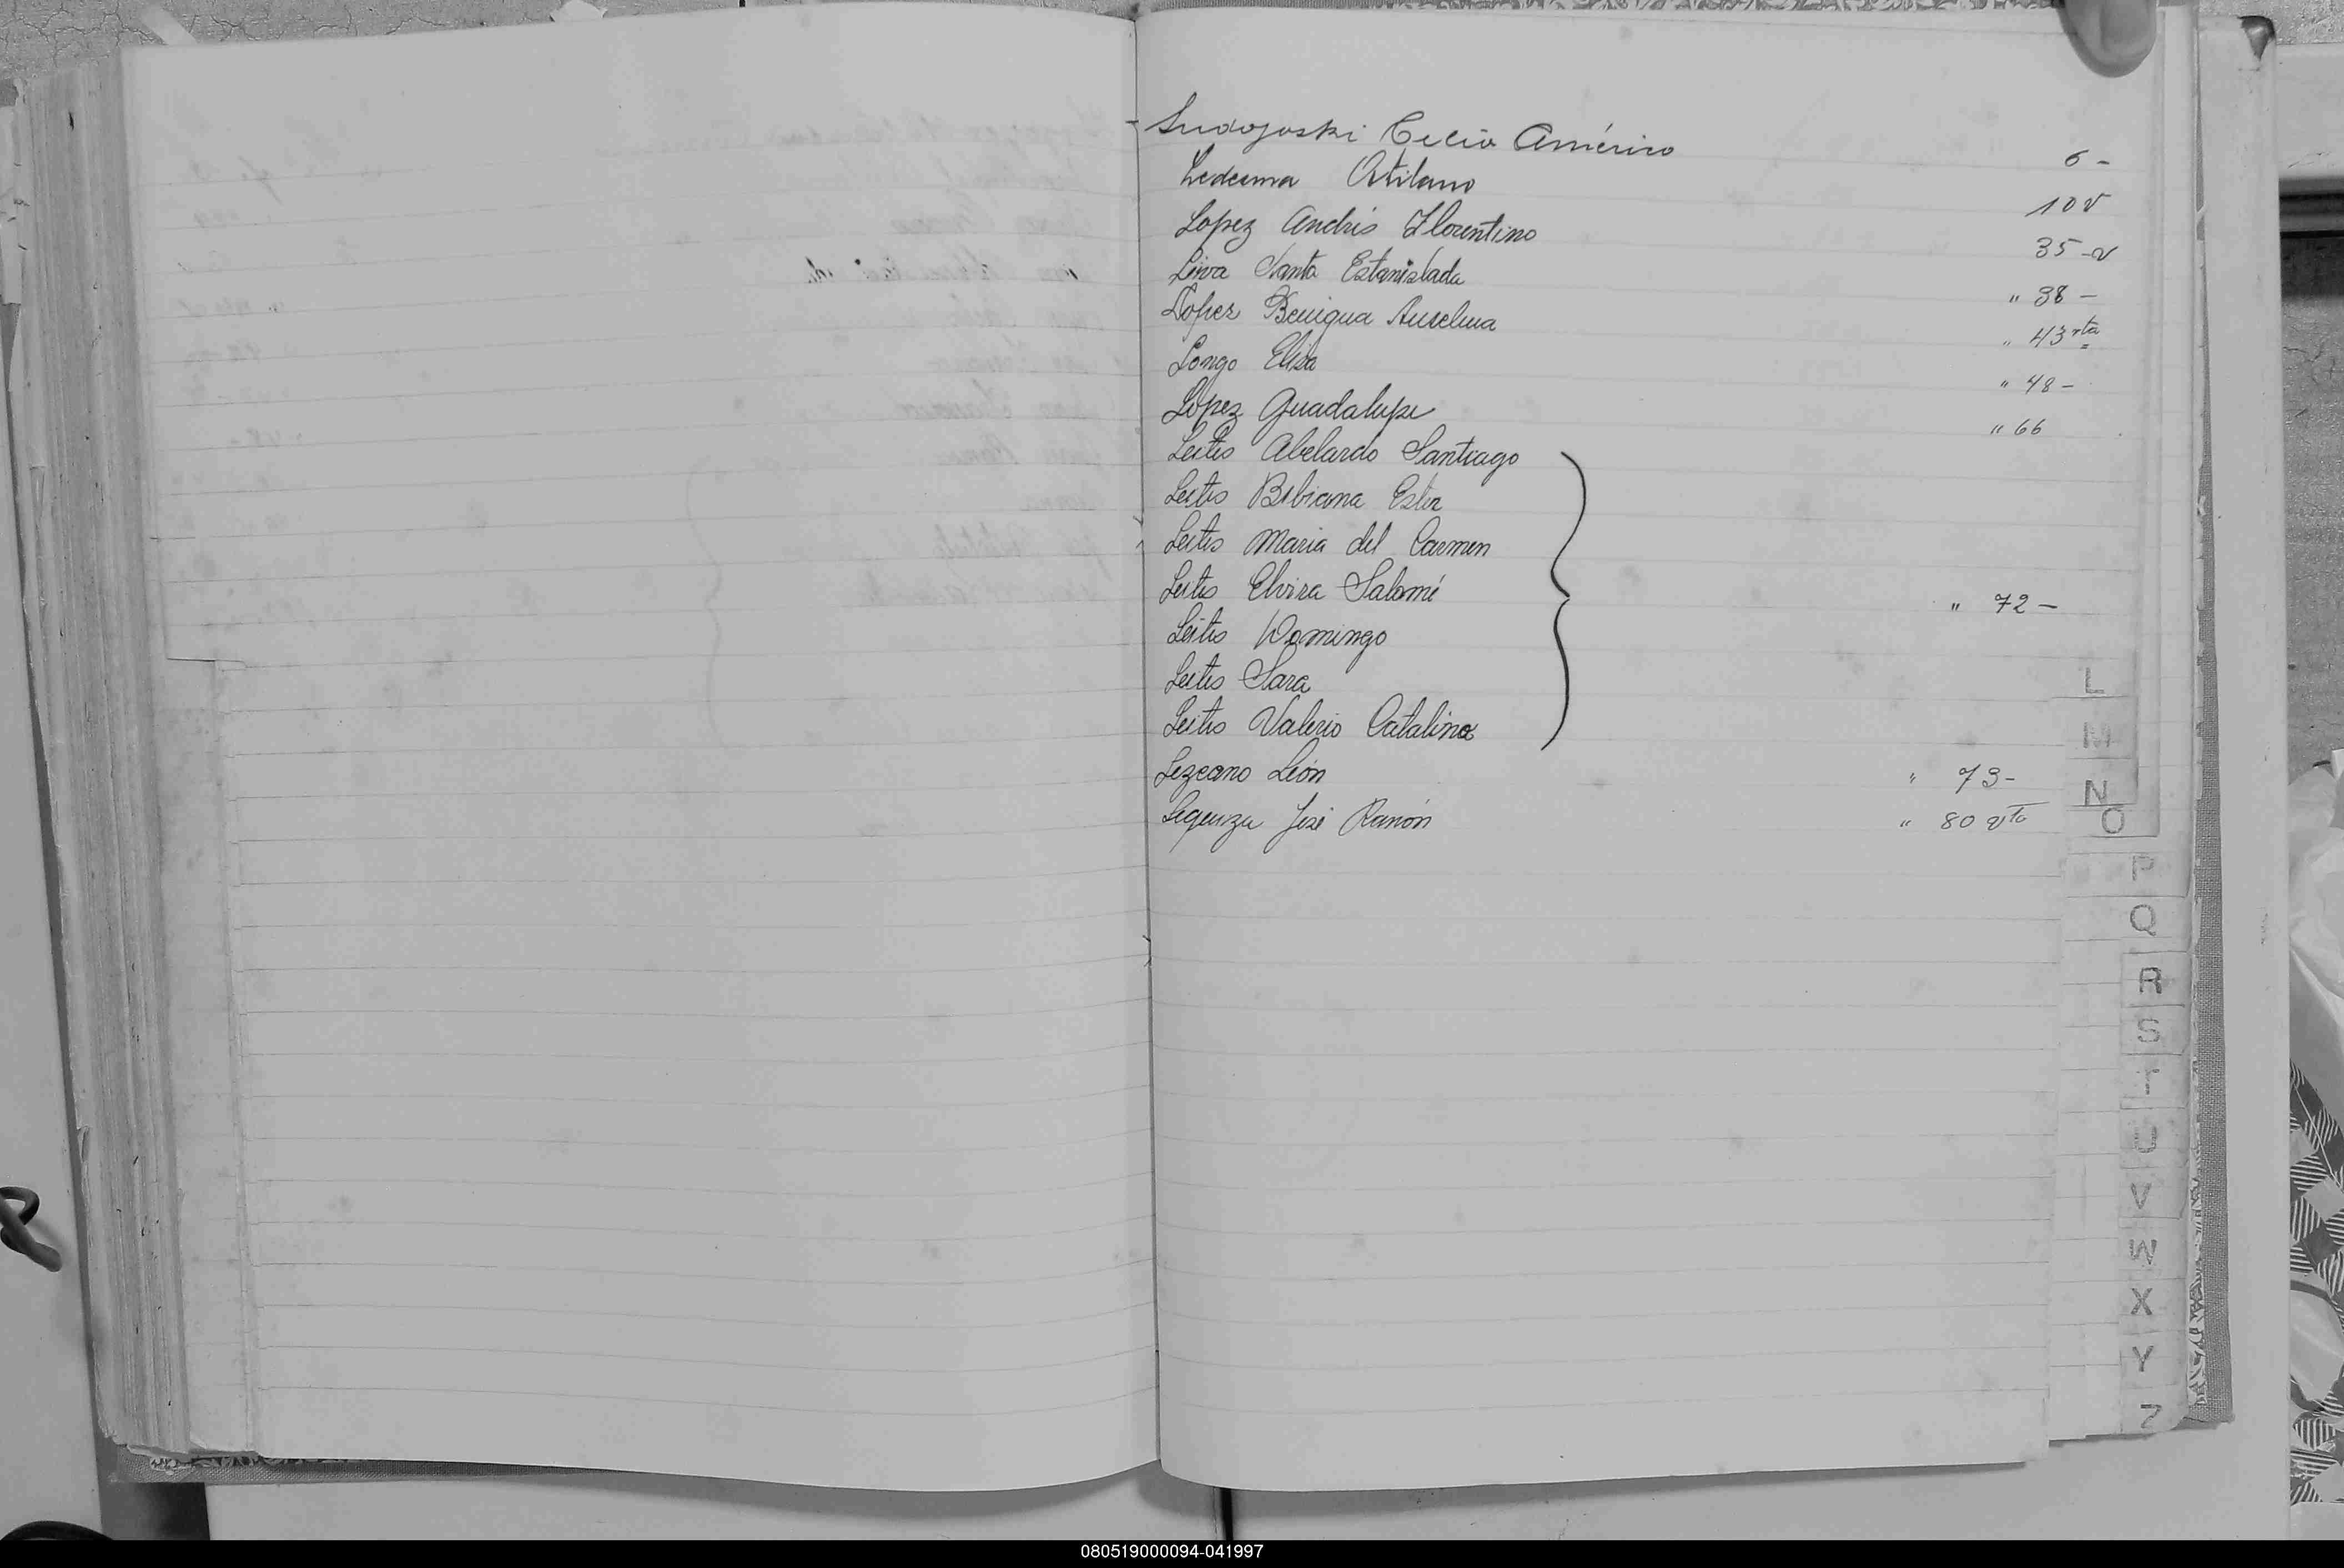 Ludojoski Celia Américo 6 -
Ledesma Atilano 10 v
Lopez Andrés Florentino 35 - v
Leiva Santa Estanislada " 38 -
Lopez Benigna Anselma " 43 vta
Longo Elisa " 48 -
Lopez Guadalupe " 66
Leites Abelardo Santiago
Leites Bibiana Ester
Leites Maria del Carmen
Leites Elvira Salomé " 72 -
Leites Domingo
Leites Sara
Leites Valerio Catalina
Lezcano León " 73 -
José Ramón " 80 vta
L
M
N
O
P
Q
R
S
T
U
V
W
X
Y
Z
080519000094-041997